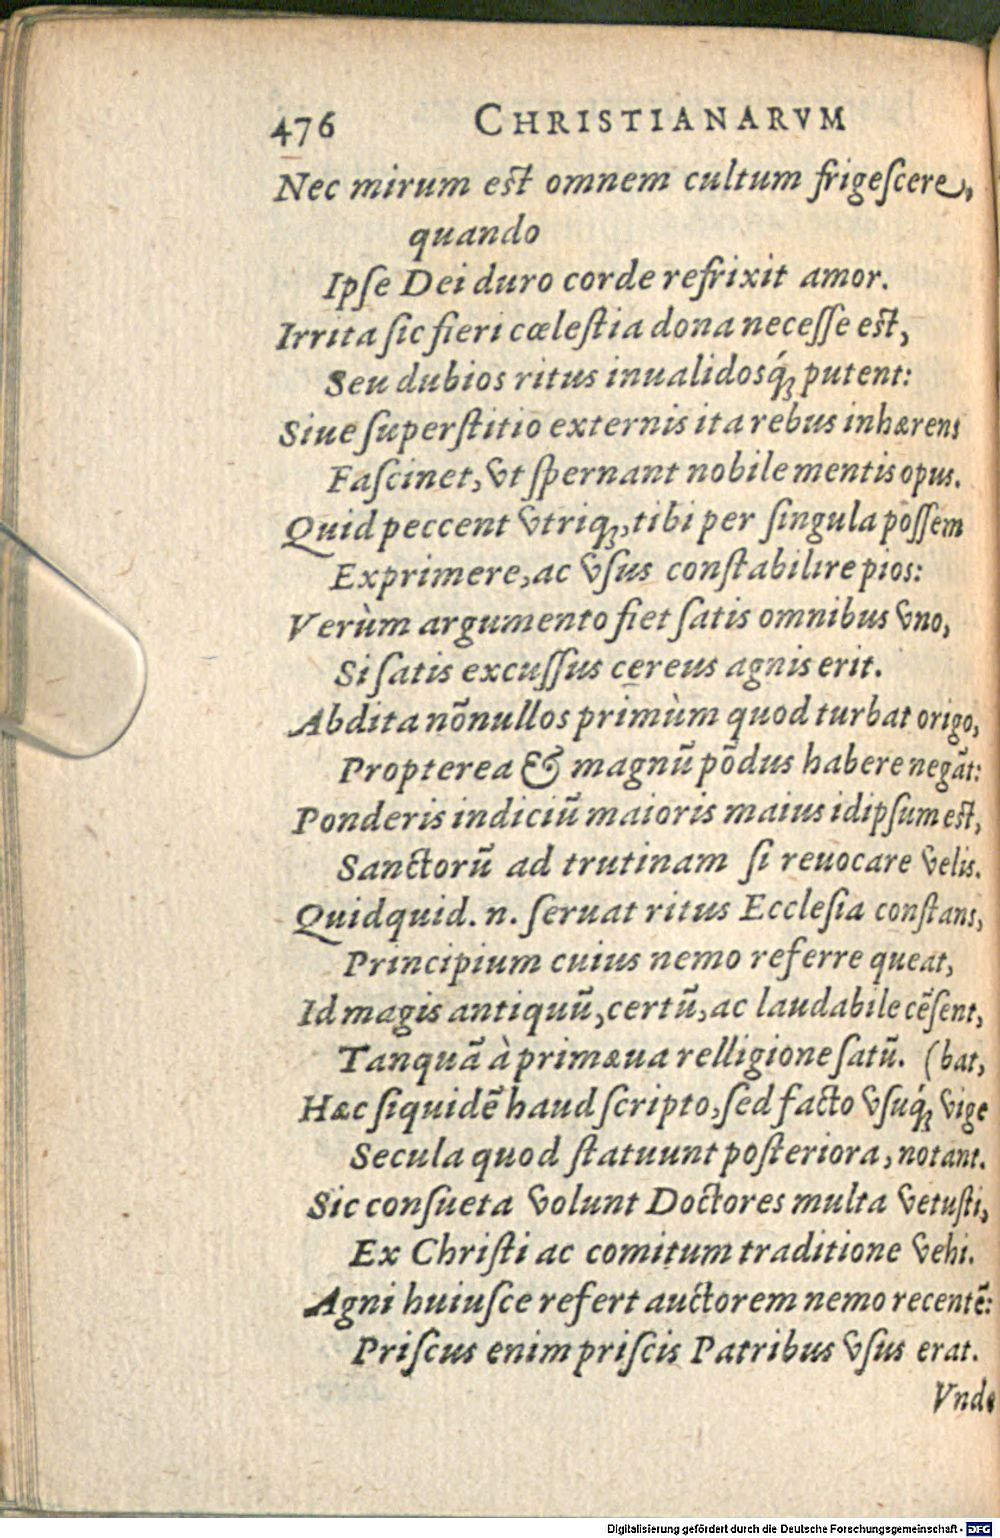 476 CHRISTIANARVM
Nec mirum est omnem cultum frigeſcere,
quando
Ipſe Dei duro corde refrixit amor.
Irrita ſic fieri cœleſtia dona neceſſe est,
Seu dubios ritus inualidosq́ꝫ putent:
Siue ſuperſtitio externis ita rebus inhærens
Faſcinet, vt ſpernant nobile mentis opus.
Quid peccent vtriqꝫ, tibi per ſingula poſſem
Exprimere, ac vſus conſtabilire pios:
Verùm argumento fiet ſatis omnibus vno,
Si ſatis excuſſus cereus agnis erit.
Abdita nõnullos primùm quod turbat origo,
Propterea & magnũ põdus habere negãt:
Ponderis indiciũ maioris maius idipſum est,
Sanctorũ ad trutinam ſi reuocare velis.
Quidquid .n. ſeruat ritus Eccleſia conſtans,
Principium cuius nemo referre queat,
Id magis antiquũ, certũ, ac laudabile cẽſent,
Tanquã à primæua relligione ſatũ. (bat,
Hæc ſiquidẽ haud ſcripto, ſed facto vſuq́ꝫ vige
Secula quod ſtatuunt poſteriora, notant.
Sic conſueta volunt Doctores multa vetuſti,
Ex Chriſti ac comitum traditione vehi.
Agni huiuſce refert auctorem nemo recentẽ:
Priſcus enim priſcis Patribus vſus erat.
Vnde
Digitalisierung gefördert durch die Deutsche Forschungsgemeinschaft - DFG